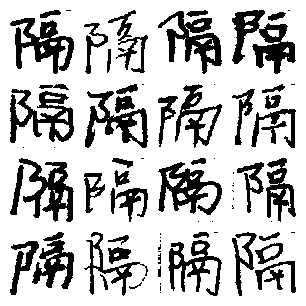 隔隔隔隔
隔隔隔隔
隔隔隔隔
隔隔隔隔